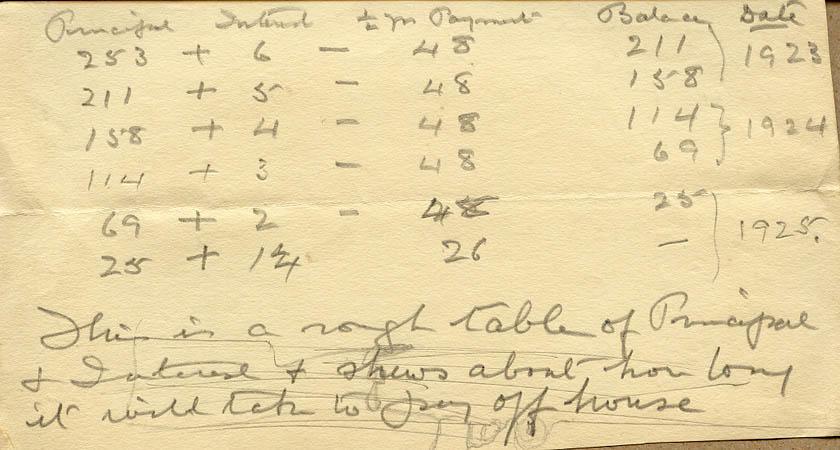 Principal Interest ½ yr Payment Balance Date
253 + 6 - 48 211 1923
211 + 5 - 48 158
158 + 4 - 48 114 1924
114 + 3 - 48 69
69 + 2 - 48 25 1925.
25 + 1¼ 26 -
This is a rough table of Principal
& Interest & shews about how long
it will take to pay off house